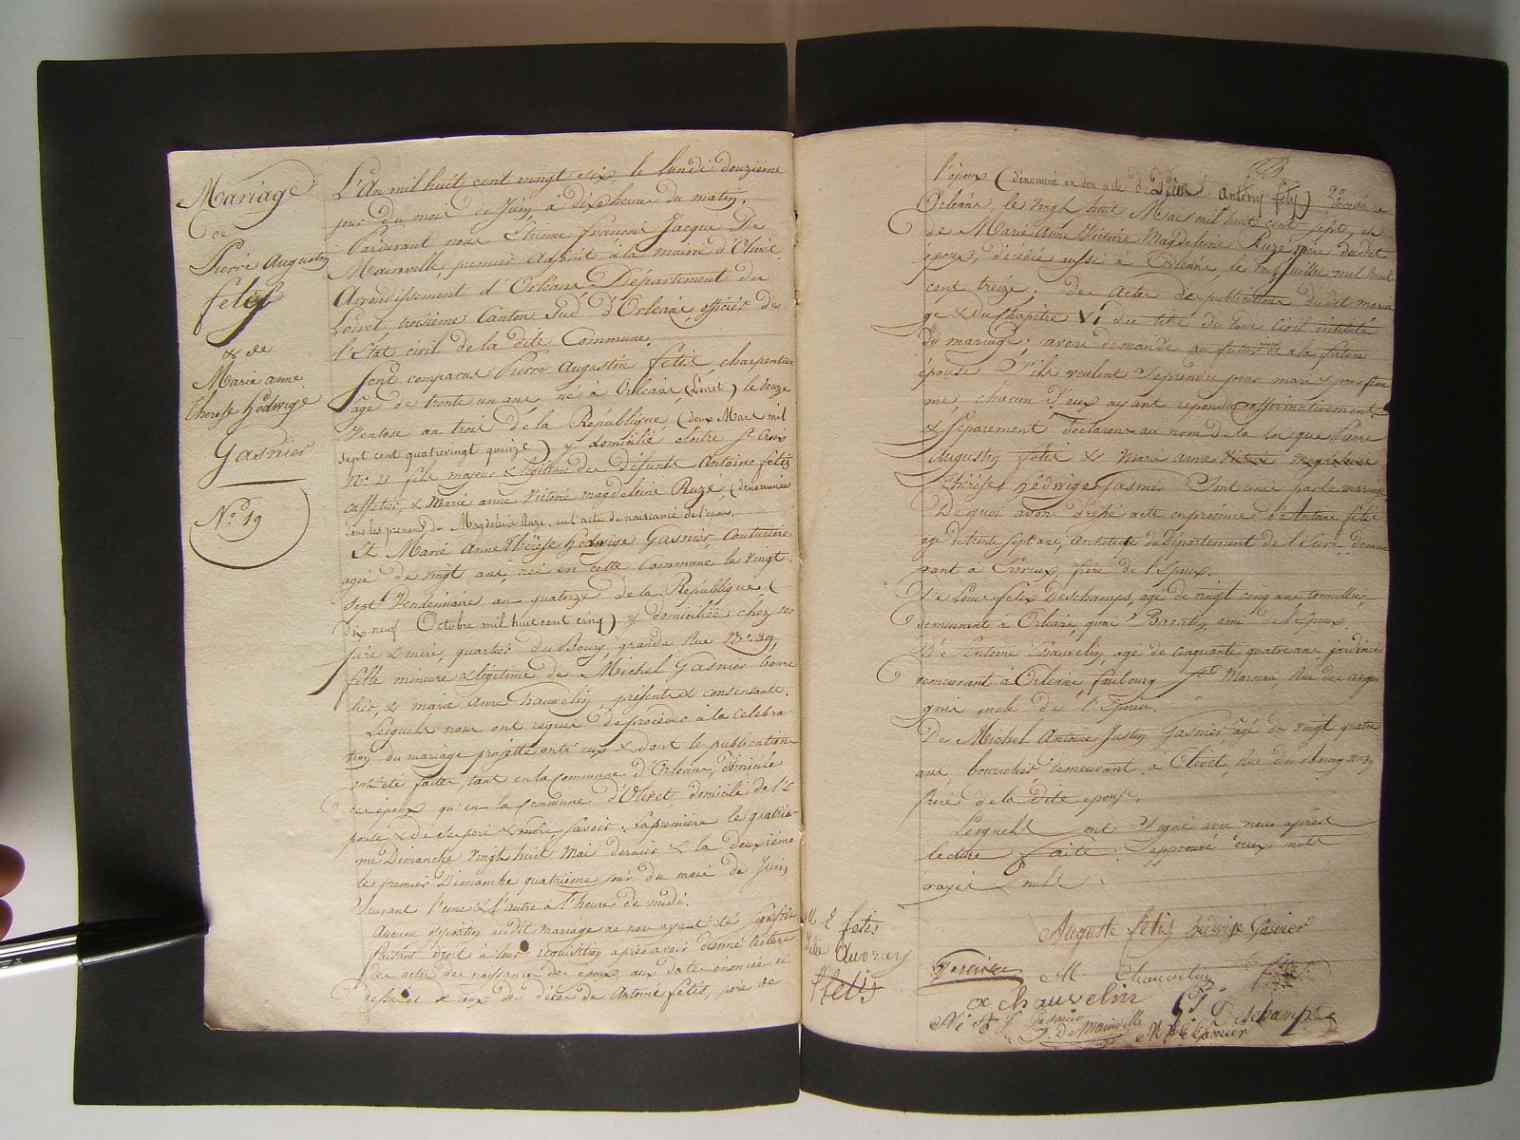 Mariage
de
Pierre Augustin
fetis
& de
Marie anne
therese hedwige
Gasnier
N.º 19
L'An mil huit cent vingt six le lundi douzième
jour du mois de Juin, à dix heures du matin.
Pardevant nous Etienne françois Jacque De
Mainville, premier adjoint à la mairie d'Olivet
Arrondissement d'Orléans Département du
Loiret, troisième Canton Sud d'Orléans officier de
l'Etat civil de la dite Commune.
Sont comparus Pierre Augustin fetis, charpentier
âgé de trente un ans, né à Orléans (Loiret) le douze
Ventose an trois de la République, (deux Mars mil
sept cent quatrevingt quinze) y domicilié cloître Ste Croix
Nº 21 fils majeur & légitime de défunts Antoine fetis
caffetier, & Marie anne Victoire magdeleine Ruzé, (dénommée
dans les prénoms de Magdeleine Ruzé, en l'acte de naissance de l'époux.
Et Marie Anne Thérèse hedwige Gasnier, Couturière
agée de vingt ans, née en cette Commune le vingt
sept Vendemiaire an quatorze de la République (
dix neuf Octobre mil huit cent cinq) & domiciliée chez ses
père & mère, quartier du Bourg, grande Rue Nº 39,
fille mineure & légitime de Michel Gasnier bourre
lier, & marie Anne Chauvelin, présents & consentants.
Lesquels nous ont requis de procéder à la célébra
tion du mariage projetté entr'eux & dont les publications
ont été faites, tant en la Commune d'Orléans, domicile
des époux qu'en la Commune d'Olivet domicile de l'é
pouse & de ses père & mère savoir: la première le quatriè-
me Dimanche vingt huit Mai dernier & la deuxième
le premier Dimanche quatrième jour du mois de Juin
Courant l'une & l'autre à l'heure de midi.
Aucune opposition audit mariage ne nous ayant été signifiée
faisant droit à leur réquisition après avoir donné lecture
des actes de naissance des époux aux dates énoncées ci
dessus & de ceux de décès de Antoine fetis, père de
l'époux (dénommé en son acte de Décès antoine fetis) décédé à
Orléans, le vingt huit Mars mil huit cent sept, et
de Marie Anne Victoire Magdeleine Ruzé mère du dit
époux, décédée aussi à Orléans, le Juillet mil huit
cent treize; des actes de publications dudit maria
ge & du Chapitre VI du titre du Code Civil intitulé
du mariage; avons demandé au futur & à la future
épouse s'ils veulent se prendre pour mari & pour fem
me chacun d'eux ayant répondu affirmativement
& séparément déclarons au nom de la loi que Pierre
Augustin fetis & Marie anne
thérèse hedwige Gasnier sont unis par le mariage
De quoi avons dressé acte en présence d'Antoine fetis
agé de trente sept ans, Architecte du Département de l'Eure demeu
rant à Evreux, frère de l'époux.
De Louis felix Deschamps, agé de vingt cinq ans tonnelier,
demeurant à Orléans, quai, ami de l'époux.
De Antoine Chauvelin, agé de cinquante quatre ans jardinier
demeurant à Orléans, faubourg St Marceau, Rue des
oncle de l'Epouse.
De Michel Antoine Justin Gasnier, agé de vingt quatre
ans, bourrelier demeurant à Olivet, Rue du Bourg
frère de la dite épouse.
Lesquels ont signé avec nous après
lecture faite: approuvé deux mots
rayés nuls.
Auguste fetis hedwige Gasnier
Gasnier M Chauvelin fetis
a chauvelin L F Deschamps
Gasnier J. De Mainville
fetis
Auvray
fetis